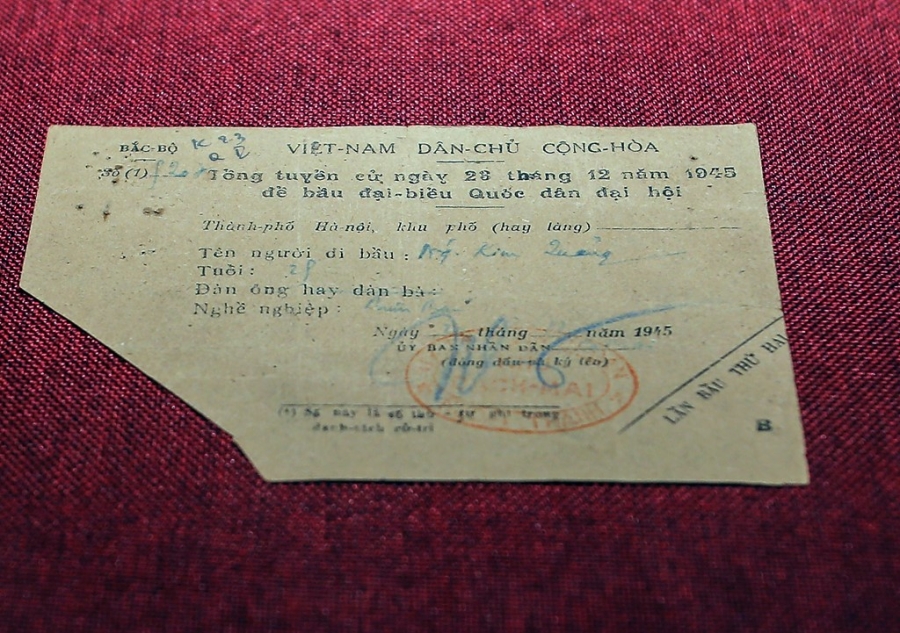 BẮC-BỘ
VIỆT-NAM DÂN-CHỦ CỘNG-HÒA
Số (1)
Tổng tuyển cử ngày 23 tháng 12 năm 1945
để bầu đại-biểu Quốc dân đại hội
Thành-phố Hà-nội, khu phố (hay làng)
Tên người đi bầu : Ng. Kim
Tuổi :
Đàn ông hay đàn bà :
Nghề nghiệp :
Ngày tháng năm 1945
ỦY BAN NHÂN DÂN
(đóng dấu và ký tên)
(1) Số này là số thứ - tự ghi trong
danh-sách cử-tri
LẦN BẦU THỨ HAI
B